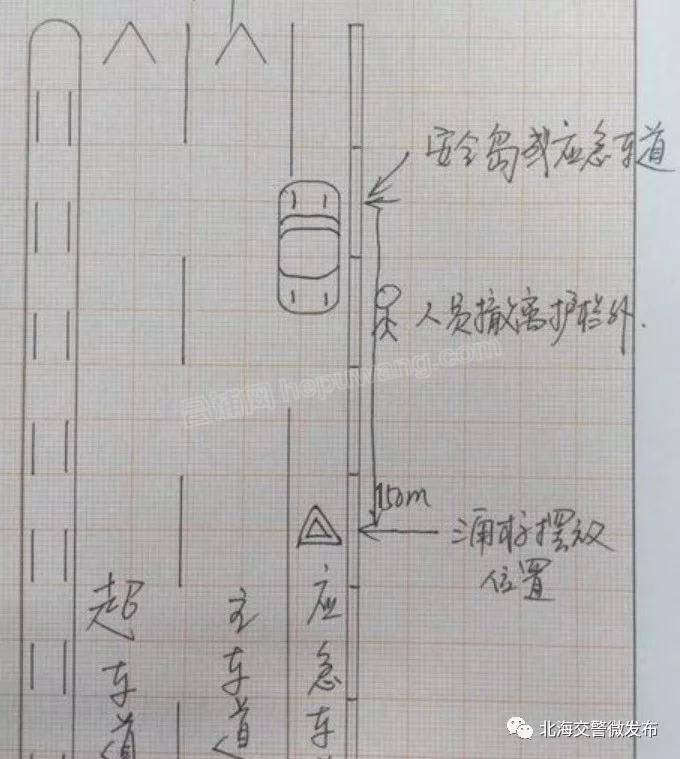 安全岛或应急车道
人员撤离护栏外.
合浦网 hepuwang.com
150m
三角标摆放
位置
超车道
主车道
应急车
北海交警微发布